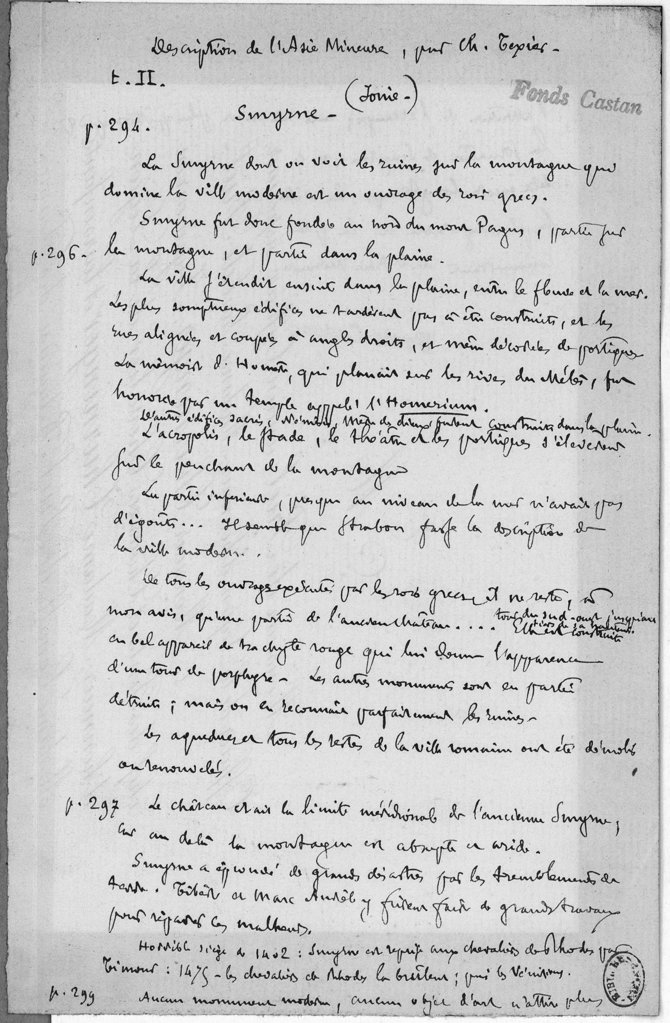 Description de l'Asie Mineure, par Ch. Texier -
t. II.
(Ionie -)
Fonds Castan
Smyrne -
p. 294.
La Smyrne dont on voit les ruines sur la montagne qui
domine la ville moderne est un ouvrage des rois grecs.
Smyrne fut donc fondée au nord du mont Pagus, partie sur
p. 296. la montagne, et partie dans la plaine.
La ville s'étendit ensuite dans la plaine, entre le fleuve et la mer.
Les plus somptueux édifices ne tardèrent pas à être construits, et les
rues alignées et coupées à angles droits, et même décorées de portiques
La mémoire d'Homère, qui planait sur les rives du Mélès, fut
honorée par un temple appelé l'Homerium.
D'autres édifices sacrés, Némésis, Mère des dieux furent construits dans la plaine.
L'acropolis, le stade, le théâtre et les portiques s'élevèrent
sur le penchant de la montagne
La partie inférieure, presque au niveau de la mer n'avait pas
d'égouts... Il semble que Strabon fasse la description de
la ville moderne..
De tous les ouvrages exécutés par les rois grecs, il ne reste, à
mon avis, qu'une partie de l'ancien château.... tour du sud-ouest jusqu'au
tiers de sa hauteur.
Elle est construite
en bel appareil de trachyte rouge qui lui donne l'apparence
d'une tour de porphyre - Les autres monuments sont en partie
détruits ; mais on en reconnaît parfaitement les ruines -
Les aqueducs et tous les restes de la ville romaine ont été démolis
ou renouvelés.
p. 297 Le château était la limite méridionale de l'ancienne Smyrne ;
car au delà la montagne est abrupte et aride.
Smyrne a éprouvé de grands désastres par les tremblements de
terre. Tibère et Marc Aurèle y firent faire de grands travaux
pour réparer ces malheurs.
Horrible siège de 1402 : Smyrne est reprise aux chevaliers de Rhodes par
Timour : 1475 - les chevaliers de Rhodes la brûlent ; puis les Vénitiens.
p. 299 Aucun monument moderne, aucun objet d'art n'attire plus